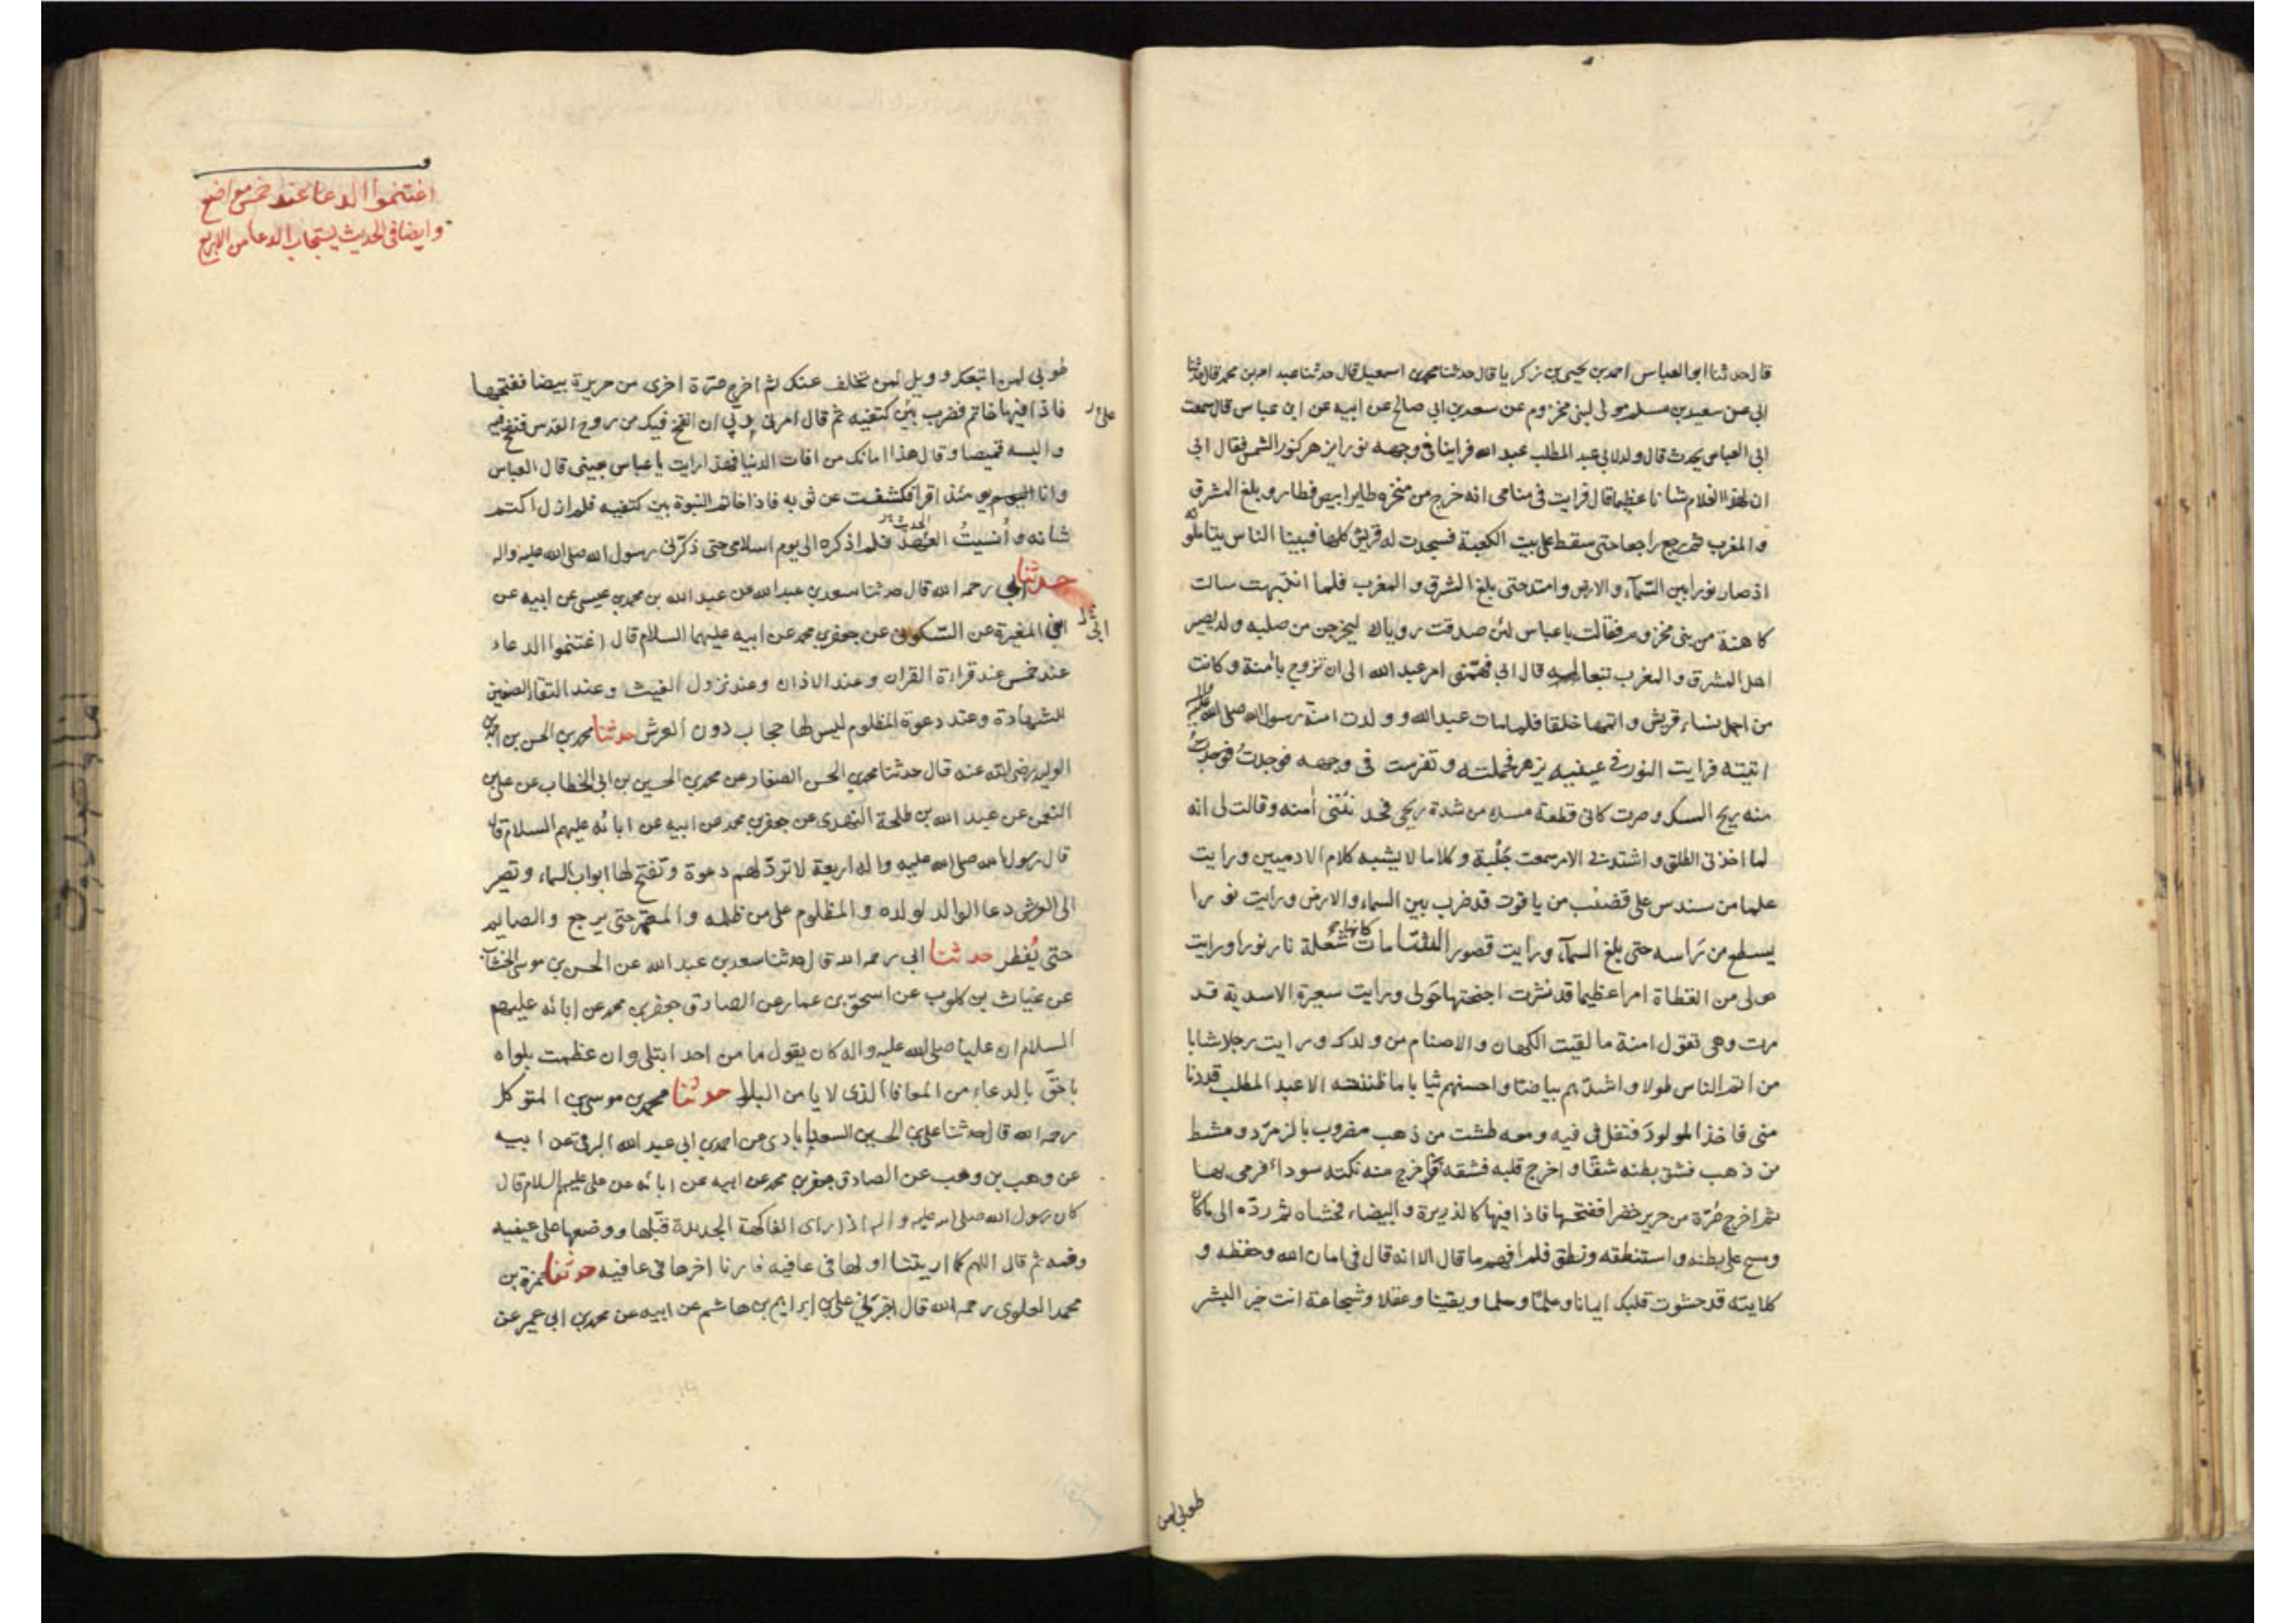 قال حدثنا ابو العباس احمد بن يحيى بن زكريا قال حدثنا محمد بن اسمعيل قال حدثنا عبد الله بن محمد قال حدثنا
ابى عن سعيد بن مسلم مولى لبنى مخزوم عن سعد بن ابى صالح عن ابيه عن ابن عباس قال سمعت
ابى العباس يحدث قال ولد لابى عبد المطلب عبد الله فراينا فى وجهه نورا يزهر كنور الشمس فقال ابى
ان لهذا الغلام شانا عظيما قال فرايت فى منامى انه خرج من منخره طاير ابيض فطار و بلغ المشرق
و المغرب ثم رجع راجعا حتى سقط على بيت الكعبة فسجدت له قريش كلها فبينا الناس يتاملونه
اذ صار نورا بين السمآء و الارض و امتد حتى بلغ المشرق و المغرب فلما انتبهت سالت
كاهنة من بنى مخزوم فقالت يا عباس لئن صدقت روياك ليخرجن من صلبه ولد يصير
اهل المشرق و المغرب تبعا له قال ابى فهمنى امر عبد الله الى ان تزوج بآمنة و كانت
من اجمل نساء قريش و اتمها خلقا فلما مات عبد الله و ولدت امنة رسول الله صلى الله عليه واله
اتيته فرايت النور فى عينيه يزهر فحملته و تفرست فى وجهه فوجدت
منه ريح المسك و صرت كانى قطعة مسك من شدة ريحى فحدثتنى امنه و قالت لى انه
لما اخذنى الطلق و اشتد بى الامر سمعت جلبة و كلاما لا يشبه كلام الادميين و رايت
علما من سندس على قضيب من ياقوت قد ضرب بين السماء و الارض و رايت نورا
يسطع من راسه حتى بلغ السمآء و رايت قصور الشامات كانها شعلة نار نورا و رايت
حولى من القطاة امرا عظيما قد نشرت اجنحتها حولى و رايت سعيرة الاسدية قد
مرت و هى تقول امنة ما لقيت الكهان و الاصنام من ولدك و رايت رجلا شابا
من اتم الناس طولا و اشدهم بياضا و احسنهم ثيابا ما ظننته الا عبد المطلب قد دنا
منى فاخذ المولود فتفل فى فيه و معه طشت من ذهب مضروب بالزمرد و مشط
من ذهب فشق بطنه شقا و اخرج قلبه فشقه فاخرج منه نكتة سوداء فرمى بها
ثم اخرج صرة من حرير خضرا ففتحها فاذا فيها كالذريرة البيضاء فحشاه ثم رده الى ما كان
و مسح على بطنه و استنطقه و نطق فلم افهم ما قال الا انه قال فى امان الله و حفظه و
كلايته قد حشوت قلبك ايمانا و علما و حلما و يقينا و عقلا و شجاعة انت خير البشر
طوبى لمن
اغتنموا الدعا عند خمس مواضع
و ايضا فى الحديث يستجاب الدعا من الاربع
طوبى لمن اتبعك و ويل لمن تخلف عنك ثم اخرج صرة اخرى من حريرة بيضا ففتحها
فاذا فيها خاتم فضرب بين كتفيه ثم قال امرنى ربى ان انفخ فيك من روح القدس فنفخ فيه
و البسه قميصا و قال هذا امانك من افات الدنيا فهذا رايت يا عباس بعينى قال العباس
و انا يومئذ اقرا فكشفت عن ثوبه فاذا خاتم النبوة بين كتفيه فلم ازل اكتم
شانه و أنسيتُ الحديث فلم اذكره الى يوم اسلامى حتى ذكرنى رسول الله صلى الله عليه واله
حدثنا ابى رحمه الله قال حدثنا سعد بن عبد الله عن عبد الله بن محمد بن عيسى عن ابيه عن
ابن المغيرة عن السكونى عن جعفر بن محمد عن ابيه عليهما السلام قال اغتنموا الدعاء
عند خمس عند قراءة القران و عند الاذان و عند نزول الغيث و عند التقاء الصفين
للشهادة و عند دعوة المظلوم ليس لها حجاب دون العرش حدثنا محمد بن الحسن بن احمد بن
الوليد رضى الله عنه قال حدثنا محمد بن الحسن الصفار عن محمد بن الحسين بن ابى الخطاب عن على بن
النعمن عن عبد الله بن طلحة النهدى عن جعفر بن محمد عن ابيه عن ابائه عليهم السلام قال
قال رسول الله صلى الله عليه و اله اربعة لا ترد لهم دعوة و تفتح لها ابواب السماء و تصير
الى العرش دعا الوالد لولده و المظلوم على من ظلمه و المعتمر حتى يرجع والصايم
حتى يُفطر حدثنا ابى رحمه الله قال حدثنا سعد بن عبد الله عن الحسن بن موسى الخشاب
عن غياث بن كلوب عن اسحق بن عمار عن الصادق جعفر بن محمد عن ابائه عليهم
السلام ان عليا صلى الله عليه و اله كان يقول ما من احد ابتلى و ان عظمت بلواه
باحقّ بالدعاء من المعافا الذى لا يامن البلاء حدثنا محمد بن موسى بن المتوكل
رحمه الله قال حدثنا على بن الحسين السعدابادى عن احمد بن ابى عبد الله البرقى عن ابيه
عن وهب بن وهب عن الصادق جعفر بن محمد عن ابيه عن ابائه عن على عليهم السلام قال
كان رسول الله صلى الله عليه و اله اذا راى الفاكهة الجديدة قبّلها و وضعها على عينيه
و فمه ثم قال اللهم كما اريتنا اولها فى عافيه فارنا اخرها فى عافيه حدثنا حمزة بن
محمد العلوى رحمه الله قال اخبرنى على بن ابراهيم بن هاشم عن ابيه عن محمد بن ابى عمير عن